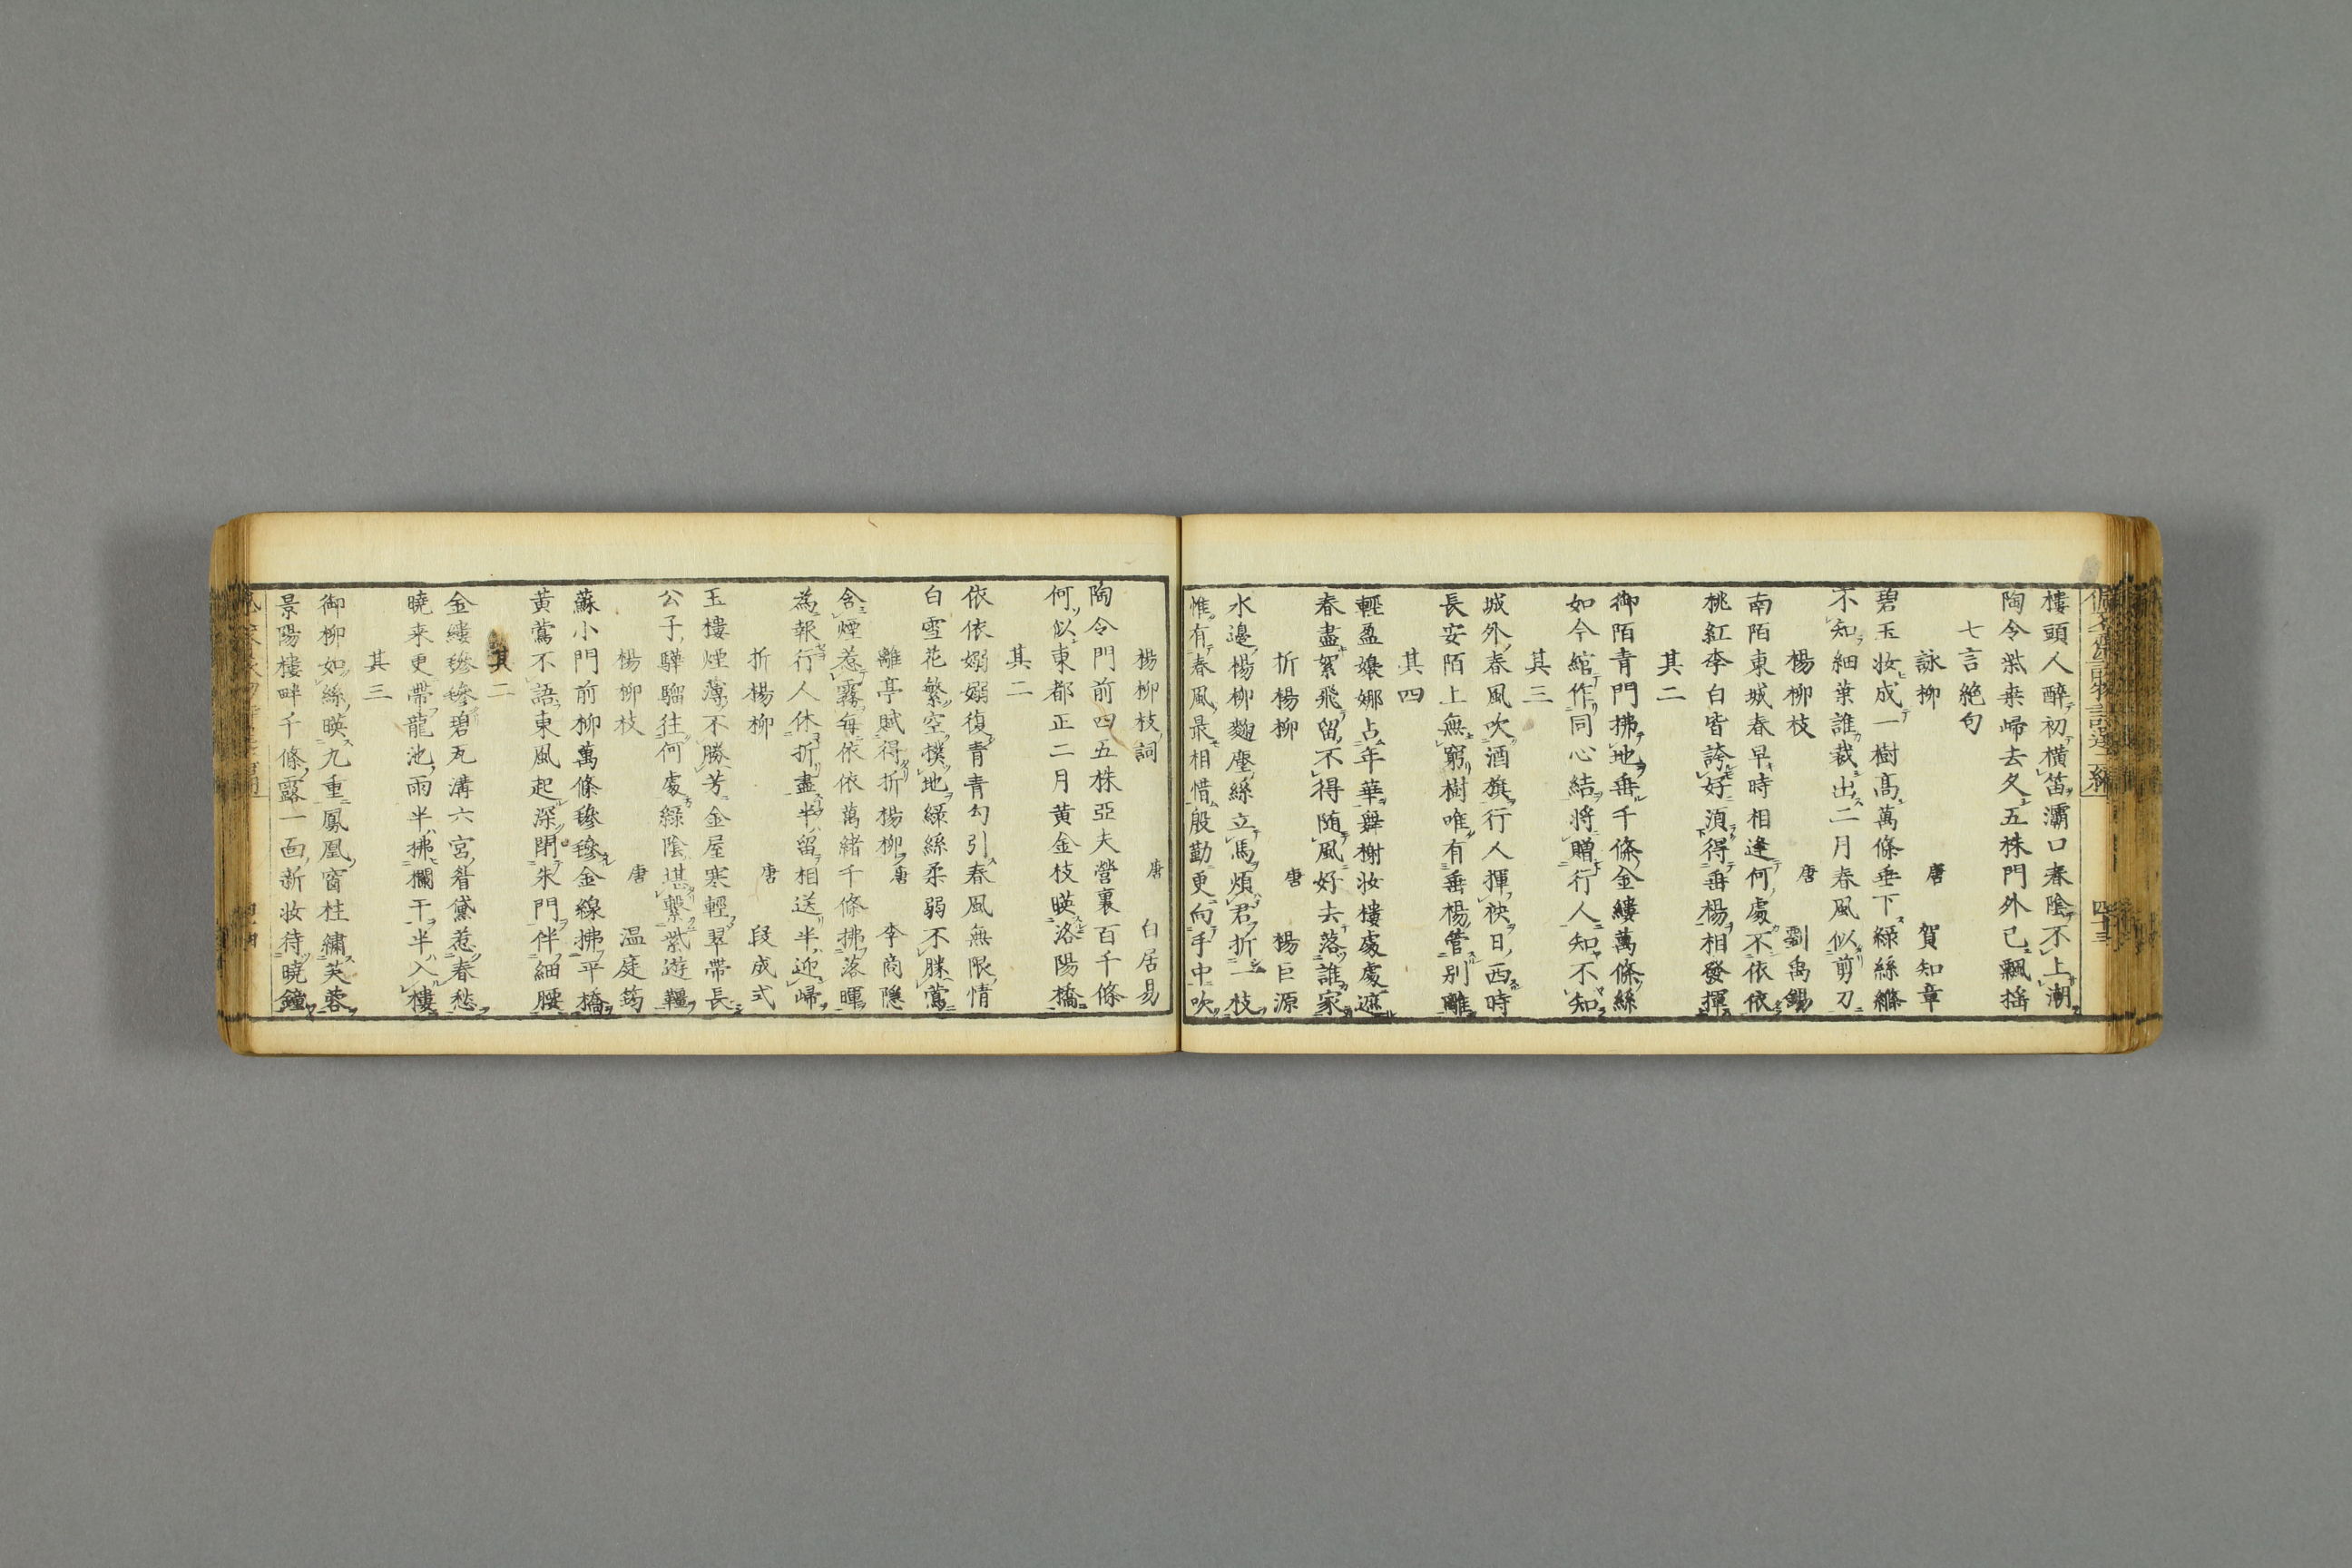 樓頭人醉初橫笛灞口春陰不上潮
陶令漆来歸去久五株門外已飄搖
七言絕句
詠柳 唐 賀知章
碧玉妝成一樹高萬條垂下綠絲絛
不知細葉誰裁出二月春風似剪刀
楊柳枝 唐 劉禹錫
南陌東城春早時相逢何處不依依
桃紅李白皆誇好須得垂楊相發揮
其二
御陌青門拂地垂千條金縷萬條絲
如今綰作同心結將贈行人知不知
其三
城外春風吹酒旗行人揮袂日西時
長安陌上無窮樹唯有垂楊管別離
其四
輕盈嬝娜占年華舞榭妝樓處處遮
春盡絮飛留不得隨風好去落誰家
折楊柳 唐 楊巨源
水邊楊柳麴塵絲立馬煩君折一枝
惟有春風最相惜殷勤更向手中吹
楊柳枝詞 唐 白居易
陶令門前四五株亞夫營裏百千條
何似東都正二月黃金枝暎洛陽橋
其二
依依嫋嫋復青青勾引春風無限情
白雪花繁空撲地綠絲柔弱不勝鶯
離亭賦得折楊柳 唐 李商隱
含煙惹霧每依依萬緒千條拂落暉
為報行人休折盡半留相送半迎歸
折楊柳 唐 段成式
玉樓煙薄不勝芳金屋寒輕翠帶長
公子驊騮往何處綠陰堪繫紫遊韁
楊柳枝 唐 温庭筠
蘇小門前柳萬條毿毿金線拂平橋
黃鶯不語東風起深閉朱門伴細腰
其二
金縷毿毿碧瓦溝六宮眉黛惹春愁
曉来更帶龍池雨半拂欄干半入樓
其三
御柳如絲暎九重鳳凰窗柱繡芙蓉
景陽樓畔千條露一面新妝待曉鐘